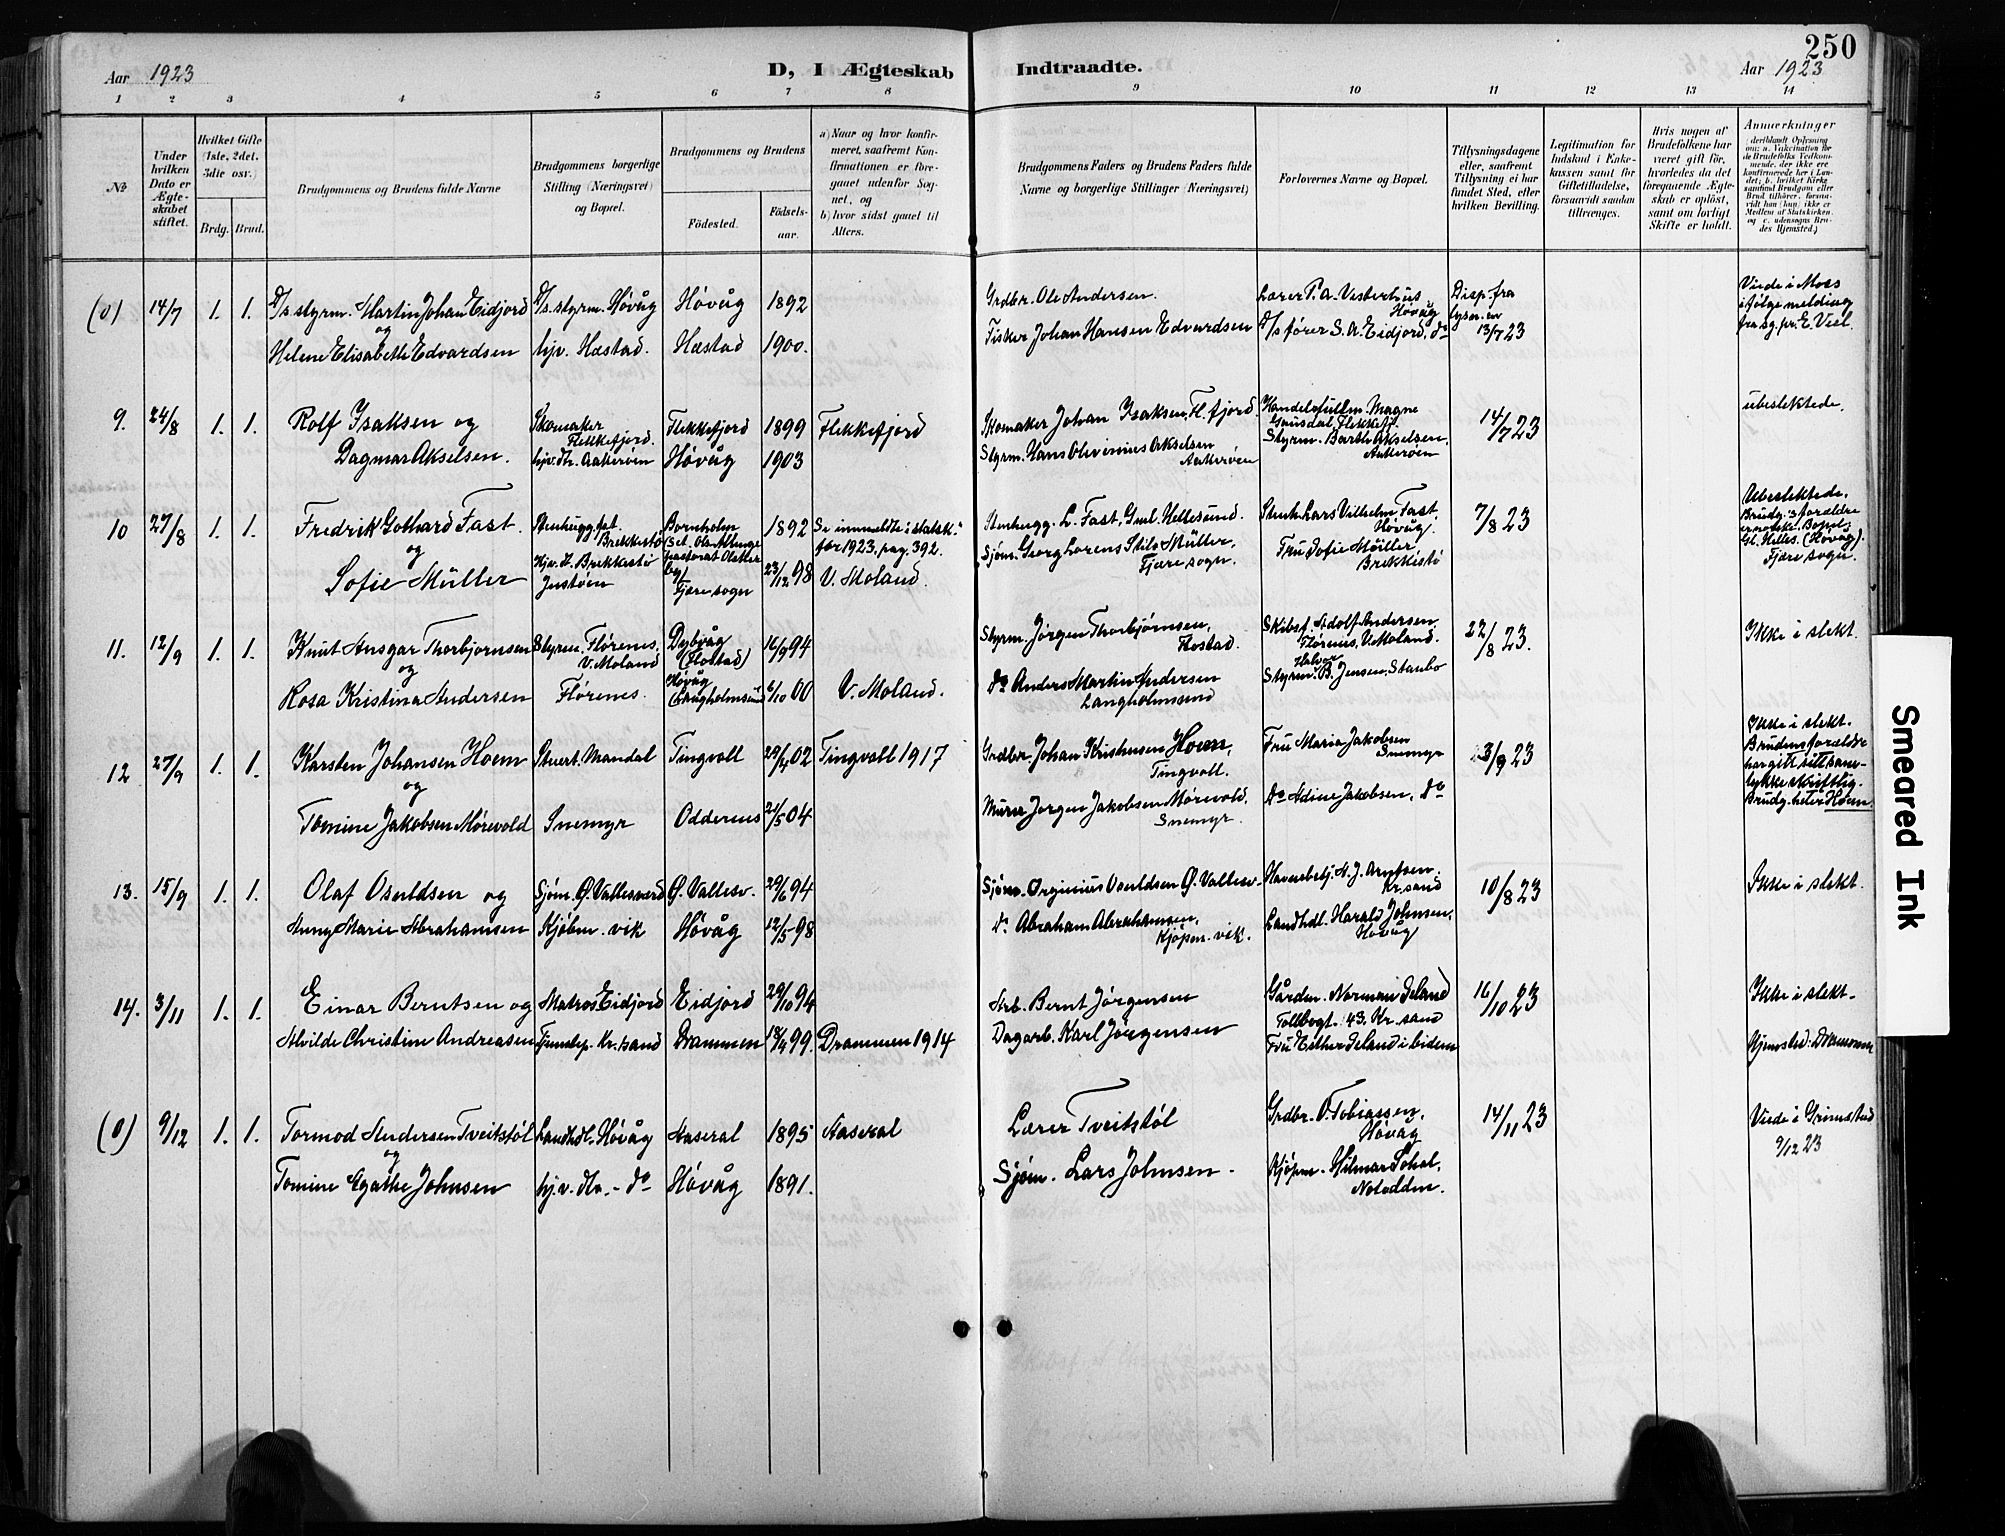 250
Aar 1923
D, I Ægteskab Indtraadte.
Aar 1923
1 2 3 4 5 6 7 8 9 10 11 12 13 14
No
Under hvilken Dato er Ægteskabet stiftet.
Hvilket Gifte (1ste, 2det, 3die osv.)
Brdg. Brud.
Brudgommens og Brudens fulde Navne
Brudgommens borgerlige Stilling (Næringsvei) og Bopæl.
Brudgommens og Brudens
Födested.
Födsels-aar.
a) Naar og hvor konfirmeret, saafremt Konfirmationen er foregaaet udenfor Sognet, og
b) hvor sidst gaaet til Alters.
Brudgommens Faders og Brudens Faders fulde Navne og borgerlige Stillinger (Næringsvei)
Forlovernes Navne og Bopæl.
Tillysningsdagene eller, saafremt Tillysning ei har fundet Sted, efter hvilken Bevilling.
Legitimation for Indskud i Enkekassen samt for Giftetilladelse, forsaavidt saadan tiltrænges.
Hvis nogen af Brudefolkene har været gift för, hvorledes da det foregaaende Ægteskab er oplöst, samt om lovligt Skifte er holdt.
Anmærkninger
(deriblandt Oplysning om: a. Vakcination for de Brudefolks Vedkommende, der ikke ere konfirmerede her i Landet; b. hvilket Kirkesamfund Brudgom eller Brud tilhörer, forsaavidt han (hun) ikke er Medlem af Statskirken, og c. udensogns Brudes Hjemsted.)
(0) 14/7 1. 1. D/s styrm. Martin Johan Eidjord D/s. styrm. Høvåg Høvåg 1892 Grdbr. Ole Andersen. Lærer P. A. Vesterhus Høvåg Disp. fra lysn. av 13/7 23 Viede i Moss ifølge melding fra sg. pr. E. Veel.
og
Helene Elisabeth Edvardsen hjv. Hæstad. Hæstad 1900. Fisker Johan Hansen Edvardsen D/s fører S. A. Eidjord, do
9. 24/8 1. 1. Rolf Isaksen og Skomaker Flekkefjord. Flekkefjord 1899 Flekkefjord Skomaker Johan Isaksen, Fl. fjord. Handelsfullm. Magne Flekkefj. 14/7 23 ubeslektede.
Dagmar Akselsen. hjv. Aakerøen Høvåg 1903 Styrm. Hans Olivinius Akselsen Aakerøen Styrm. Barth Akselsen, Aakerøen
10 27/8 1. 1. Fredrik Gothard Fast. Stenhugg. Brekkestø Bornholm 1892 Se innmeldte i statsk. før 1923, pag. 392. Stenhugg. L. Fast, Gml. Hellesund. Stenh. Lars Vilhelm Fast, Høvåg. 7/8 23 Ubeslektede. Brudg.s forældre er norske. Bopel: Gl. Helles. (Høvåg). Fjære sogn.
og
Sofie Müller Hjv. H. Brekkestø Justøen Fjære sogn 23/12 98 V. Moland. Sjøm. Georg Lorens Müller, Fjære sogn. Fru Sofie Müller Brekkestø
11. 12/9 1. 1. Knut Ansgar Thorbjørnsen Styrm. Flørenes, V. Moland Dybvåg (Flostad) 16/9 94 Styrm. Jørgen Thorbjørnsen, Flostad. Skibsf. Adolf Andersen, Flørenes, V. Moland. 22/8 23. Ikke i slekt.
og
Rosa Kristina Andersen Flørenes. Høvåg (Langholmsund) 1/10 00 V. Moland. do Anders Martin Andersen Langholmsund Styrm. Halvor B. Jensen, Stanbo
12 27/9 1. 1. Karsten Johansen Hoem Stuert. Mandal Tingvoll 29/4 02 Tingvoll 1917 Grdbr. Johan Kristensen Hoem, Tingvoll. Fru Maria Jakobsen Snemyr 3/9 23 Ikke i slekt. Brudens forældre har gitt sitt samtykke skriftlig. Brudg. heter Hoem
og
Tomine Jakobsen Mørevold Snemyr Oddernes 21/5 04 Murer Jørgen Jakobsen Mørevold, Snemyr. Do Adine Jakobsen, do
13. 15/9 1. 1. Olaf Osuldsen og Sjøm. Ø. Vallesværd Ø. Vallesv. 29/6 94 Sjøm. Osuldsen Ø. Vallesv. Havnebetj. A. J. Arntsen, Kr.sand 10/8 23 Ikke i slekt.
Anny Marie Abrahamsen Kjøbm. vik Høvåg 12/5 98 do Abraham Abrahamsen, Kjøpm. vik. Landhdl. Harald Johnsen, Høvåg
14. 3/11 1. 1. Einar Berntsen og Matros Eidjord Eidjord 29/10 94 Arb. Bernt Jørgensen Gården. Norman Iseland Tollbogt. 43, Kr. sand 16/10 23 Ikke i slekt.
Alvilde Christine Andreasen Tjenstep. Kr. sand Drammen 18/4 99. Drammen 1914 Dagarb. Karl Jørgensen Fru Esther Iseland ibidem Hjemsted: Drammen
(0) 9/12 1. 1. Tormod Andersen Tveitstøl Landhdl. Høvåg Aaseral 1895 Aaseral Lærer Tveitstøl Grdbr. O. Tobiassen, Høvåg 14/11 23 Viede i Grimstad 9/12 23
og
Tomine Egathe Johnsen hj. v. do Høvåg 1891. Sjøm. Lars Johnsen. Kjøpm. Hilmar Notodden.
Smeared Ink